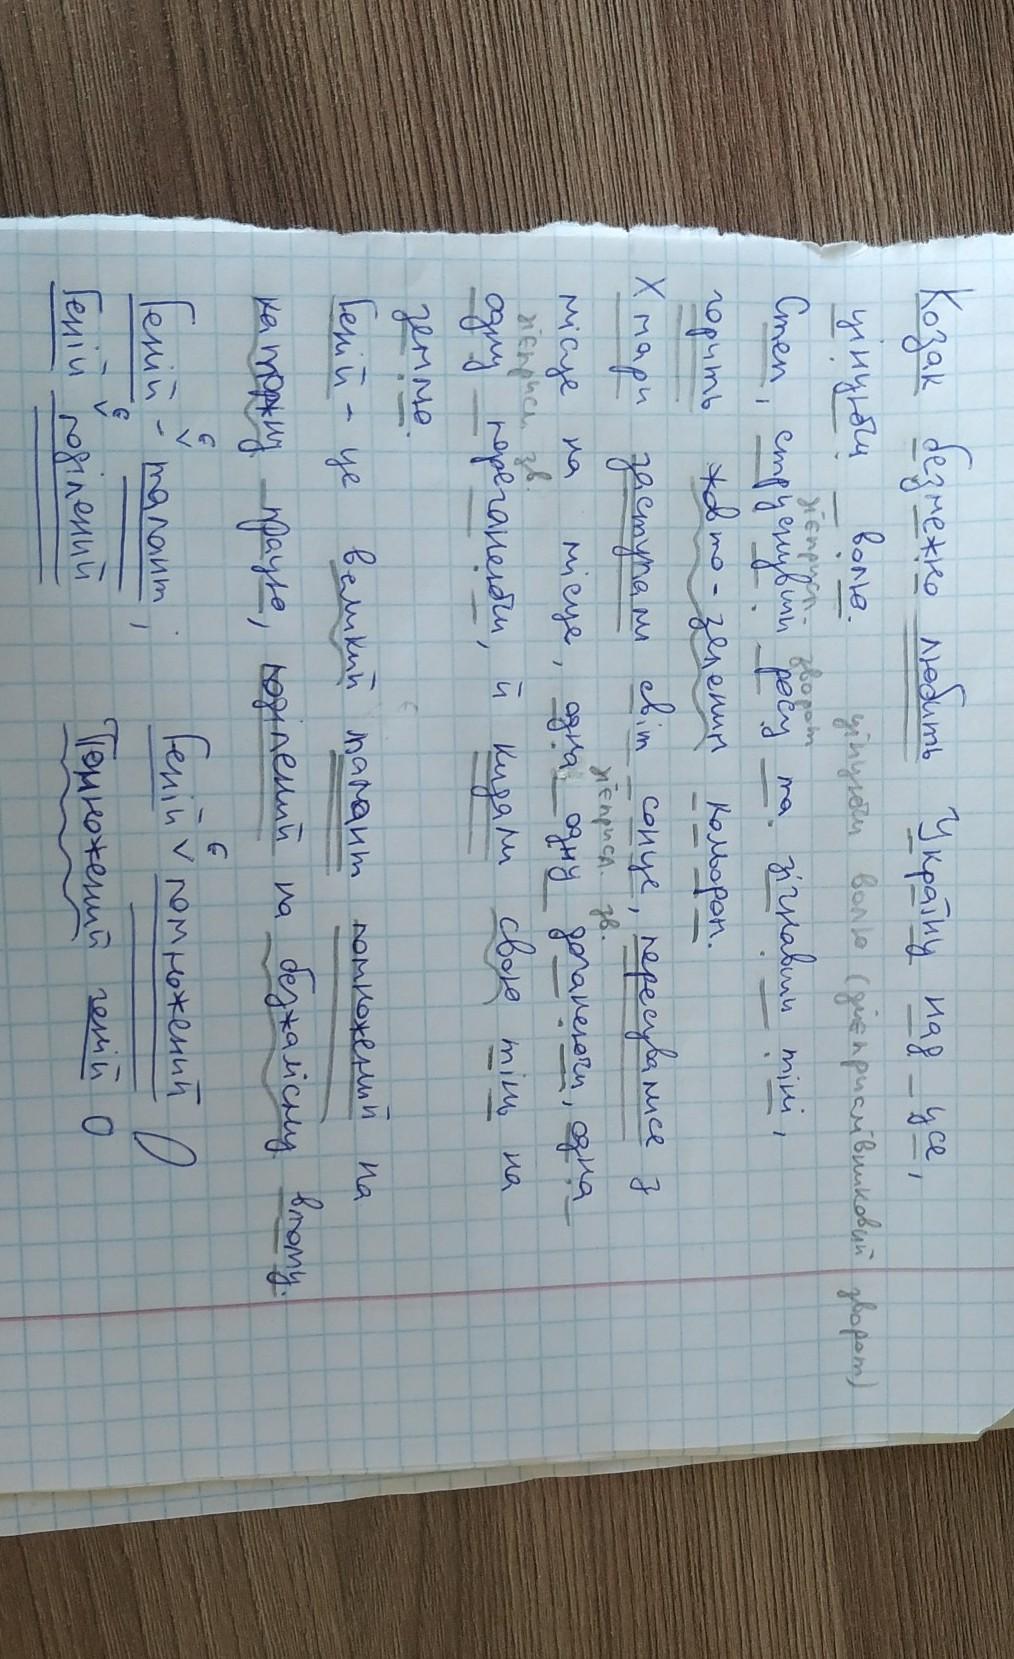 Козак безмежно любить Україну над усе,
цінуючи волю. цінуючи волю (дієприслівниковий зворот)
дієприсл. зворот
Степ, струснувши росу та зігнавши тіні,
горить жовто-зеленим кольором.
Хмари заступали світ сонце, пересувалися з
дієприсл. зв.
місце на місце, одна одну доганяючи, одна
дієприсл. зв.
одну переганяючи, й кидали свою тінь на
землю.
є
Геній - це великий талант помножений на
каторжну працю, поділений на безжалісну втому.
є є
Геній - талант, Геній помножений
є
Геній поділений Помножений геній